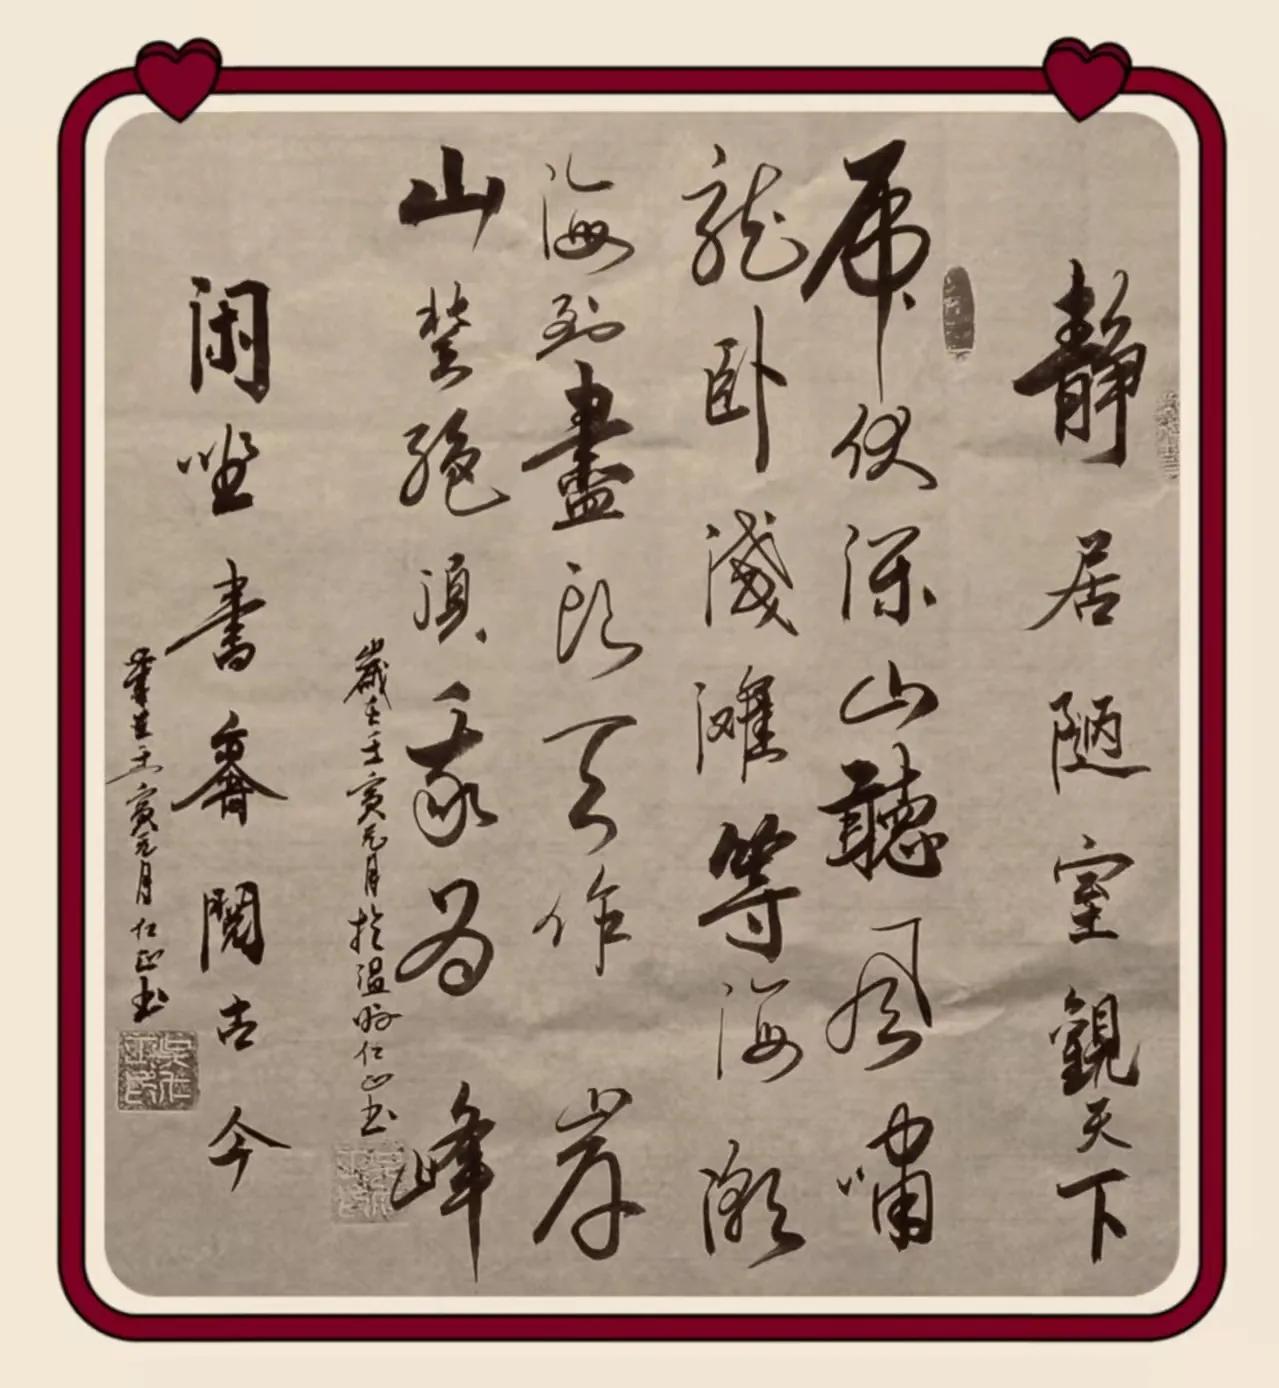 靜居陋室觀天下
虎伏深山聽風嘯
龍卧淺灘等海潮
海到盡頭天作岸
山登絕頂我為峰
歲在壬寅元月於温 仁正书
閑坐書齋閱古今
壬寅元月仁正书